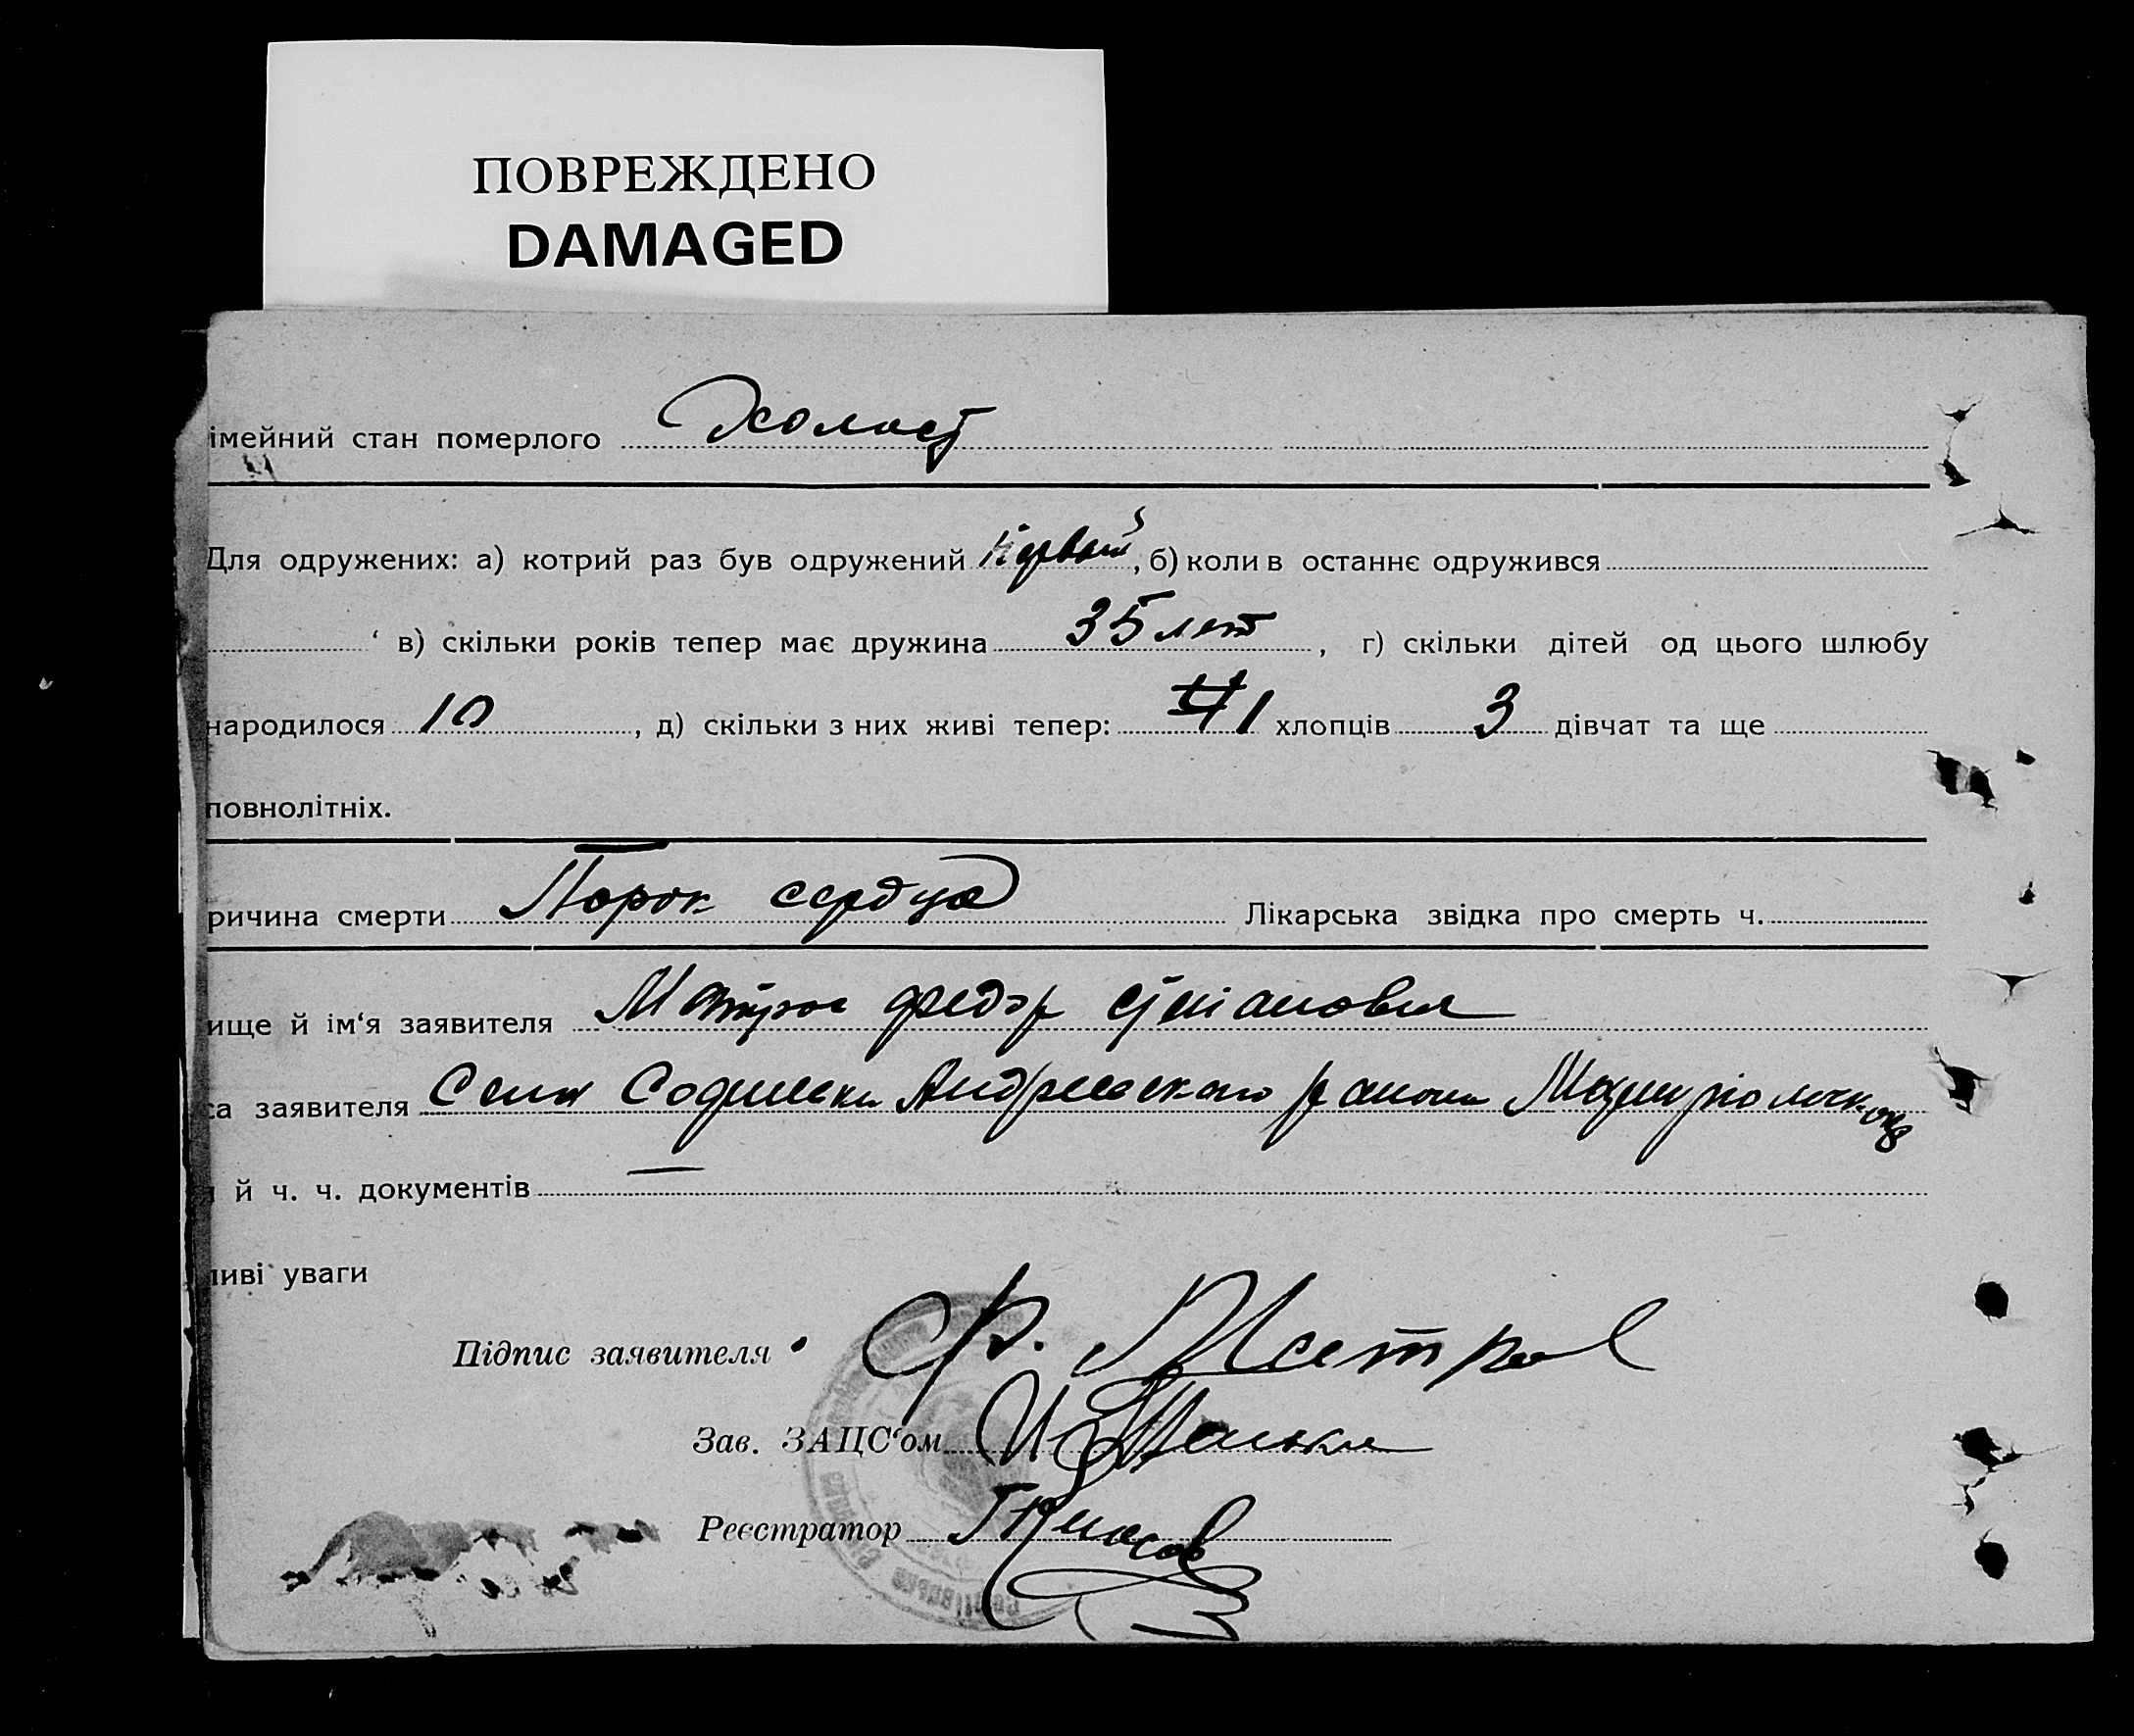 ПОВРЕЖДЕНО
DAMAGED
імейний стан померлого Холост
Для одружених: а) котрий раз був одружений Первый, б) коли в останнє одружився
в) скільки років тепер має дружина 35 лет, г) скільки дітей од цього шлюбу
народилося 10, д) скільки з них живі тепер: 1 хлопців 3 дівчат та ще
повнолітніх.
ричина смерти Порок сердца Лікарська звідка про смерть ч.
ище й ім'я заявителя Федор
са заявителя Андреевского района
й ч. ч. документів —
ливі уваги
Підпис заявителя Ф.
Зав. ЗАЦС'ом
Реєстратор